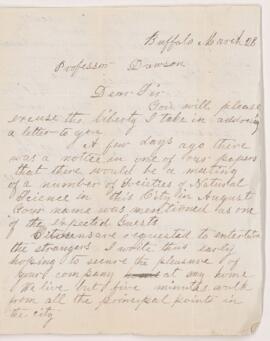 Buffalo March 28
Professor Dawson
Dear Sir
You will please
excuse the liberty I take in addressing
a letter to you
A few days ago there
was a notice in one of our papers
that there would be a meeting
of a number of Societies of Natural
Science in this City in August
Your name was mentioned as one
of the expected Guests
Citizens are requested to entertain
the strangers. I write thus early
hoping to secure the pleasure of
your company at my home
We live but five minutes walk
from all the principal points in
the city